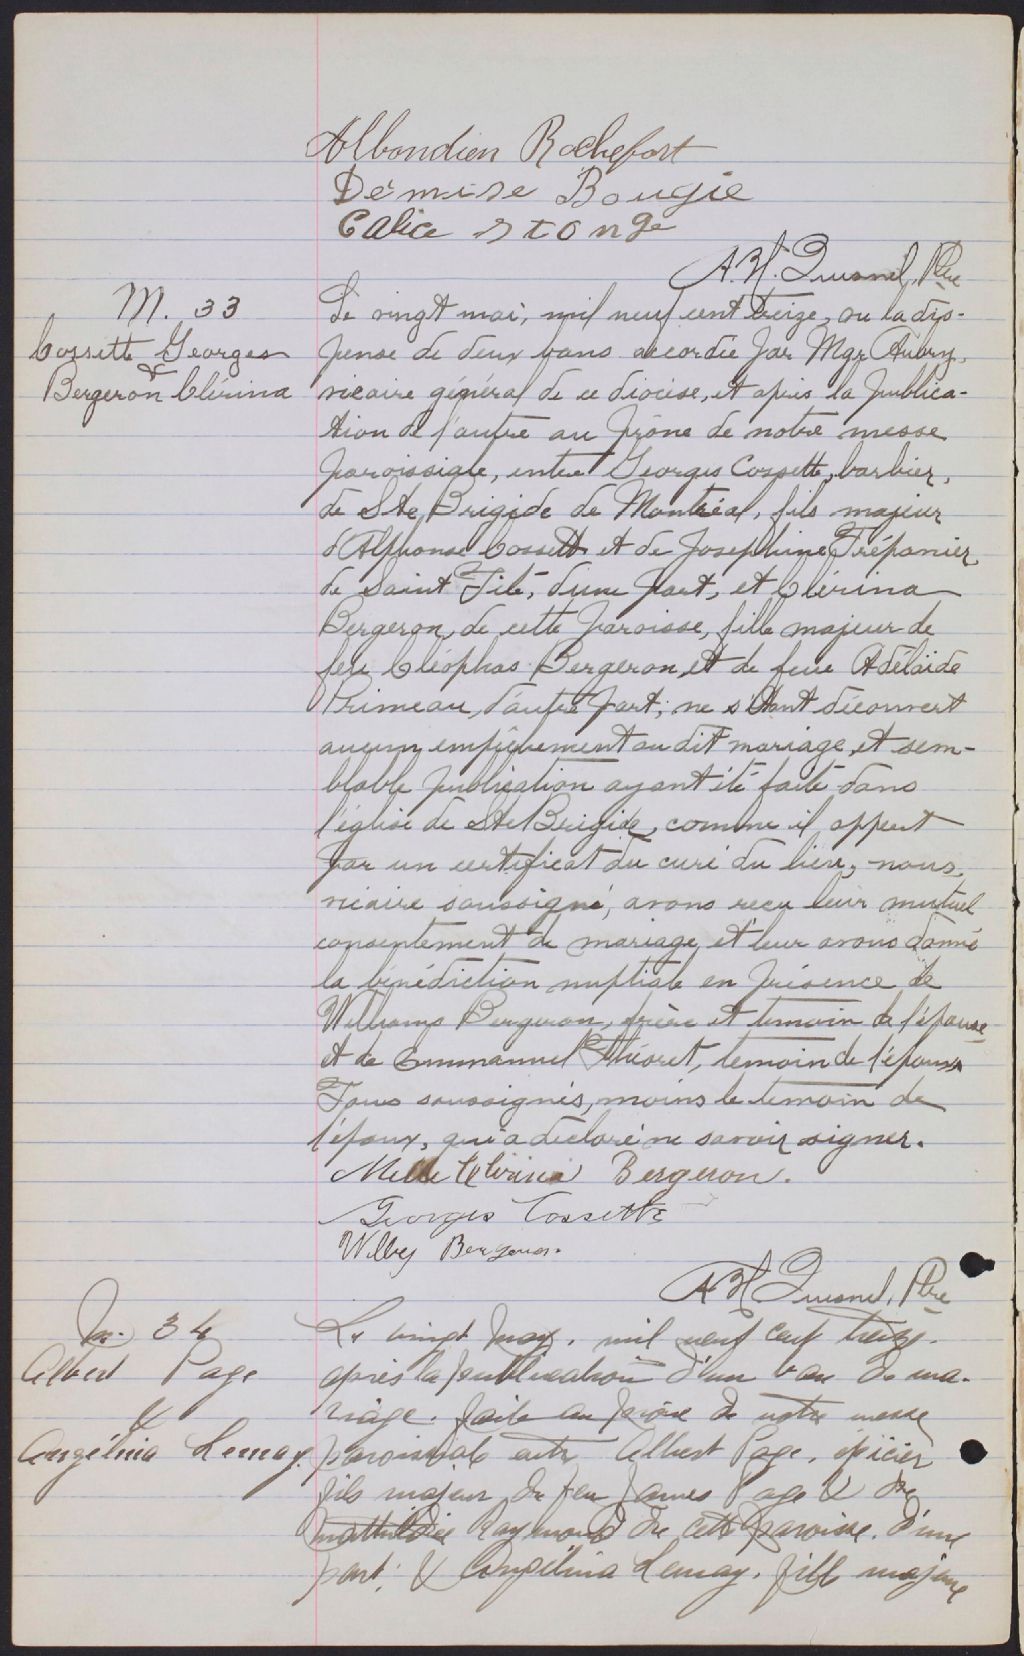 Albondien Rochefort
Dermise Bougie
Calice Stonge
A. H. Quesnel, Ptre
M. 33
Cossette Georges
&
Bergeron Clérina
Le vingt mai, mil neuf cent treize, vu la dis-
pense de deux bans accordée par Mgr Aubry,
vicaire général de ce diocèse, et après la publica-
tion de l'autre au prône de notre messe
paroissiale, entre Georges Cossette, barbier,
de Ste Brigide de Montréal, fils majeur
d'Alphonse Cossette et de Josephine Trépanier,
de Saint Tite, d'une part, et Clérina
Bergeron, de cette paroisse, fille majeur de
feu Cléophas Bergeron, et de feue Adélaïde
Primeau, d'autre part; ne s'étant découvert
aucun empêchement au dit mariage, et sem-
blable publication ayant été faite dans
l'église de Ste Brigide, comme il appert
par un certificat du curé du lieu, nous,
vicaire soussigné, avons reçu leur mutuel
consentement de mariage, et leur avons donné
la bénédiction nuptiale en présence de
Williams Bergeron, frère et temoin de l'épouse
et de Emmanuel Théoret, temoin de l'époux
Tous soussignés, moins le temoin de
l'époux, qui a déclaré ne savoir signer.
Melle Clérina Bergeron.
Georges Cossette
Willy Bergeron.
A H Quesnel, Ptre
M. 34
Albert Page
&
Angélina Lemay.
Le vingt may, mil neuf cent treize,
après la publication d'un ban de ma-
riage, faite au prône de notre messe
paroissiale entre Albert Page, épicier
fils majeur de feu James Page & de
Mathildie Raymond de cette paroisse, d'une
part; & Angélina Lemay, fille majeure